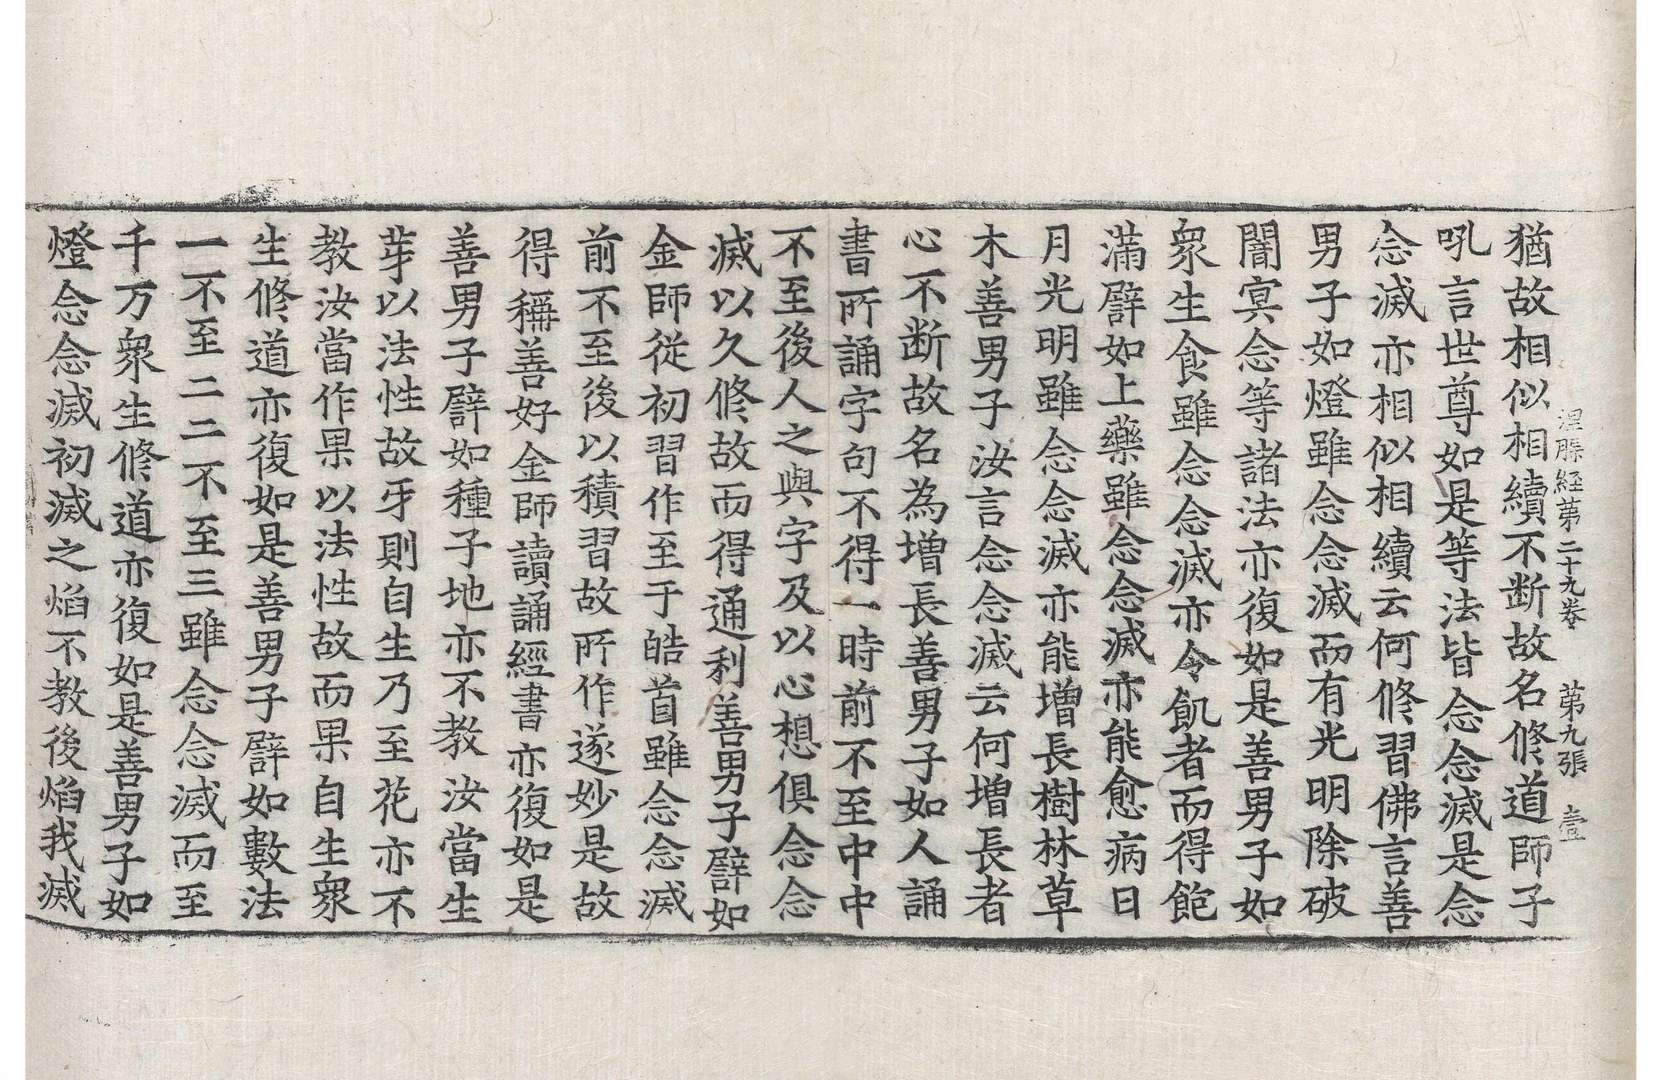 涅縣経苐二十九卷 苐九張 壹
猶故相似相續不断故名修道師子
吼言世尊如是等法皆念念滅是念
念滅亦相似相續云何修習佛言善
男子如燈雖念念滅而有光明除破
闇㝠念等諸法亦復如是善男子如
衆生食雖念念滅亦令飢者而得飽
滿譬如上藥雖念念滅亦能愈病日
月光明雖念念滅亦能增長樹林草
木善男子汝言念念滅云何增長者
心不断故名為增長善男子如人誦
書所誦字句不得一時前不至中中
不至後人之與字及以心想俱念念
滅以久修故而得通利善男子譬如
金師從初習作至于皓首雖念念滅
前不至後以積習故所作遂妙是故
得稱善好金師讀誦經書亦復如是
善男子譬如種子地亦不教汝當生
芽以法性故牙則自生乃至花亦不
教汝當作果以法性故而果自生衆
生修道亦復如是善男子譬如數法
一不至二二不至三雖念念滅而至
千万衆生修道亦復如是善男子如
燈念念滅初滅之焰不教後焰我滅